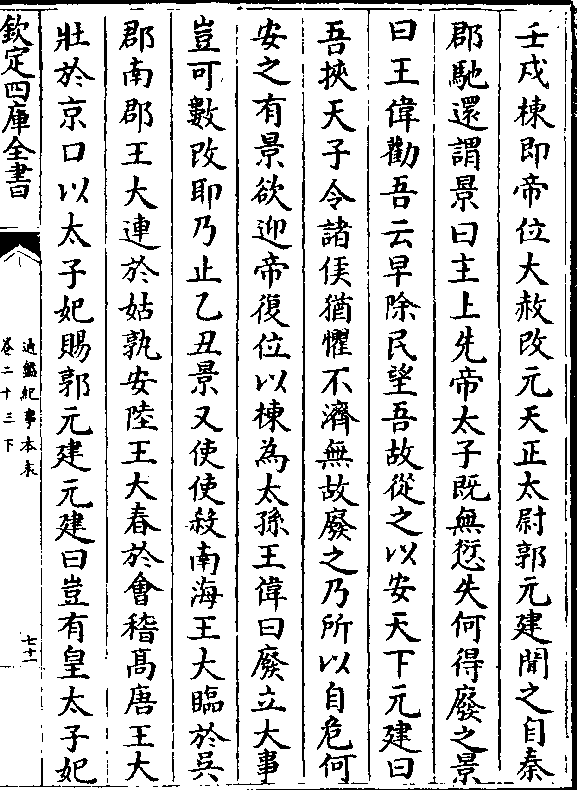 壬戌棟即帝位大赦改元天正太尉郭元建聞之自秦
郡馳還謂景曰主上先帝太子既無愆失何得廢之景
曰王偉勸吾云早除民望吾故從之以安天下元建曰
吾挾天子令諸侯猶懼不濟無故廢之乃所以自危何
安之有景欲迎帝復位以棟為太孫王偉曰廢立大事
豈可數改耶乃止乙丑景又使使殺南海王大臨於吳
郡南郡王大連於姑孰安陸王大春於會稽髙唐王大
壯於京口以太子妃賜郭元建元建曰豈有皇太子妃
欽定四庫全書
通鑑紀事本末
卷二十三下
七十一